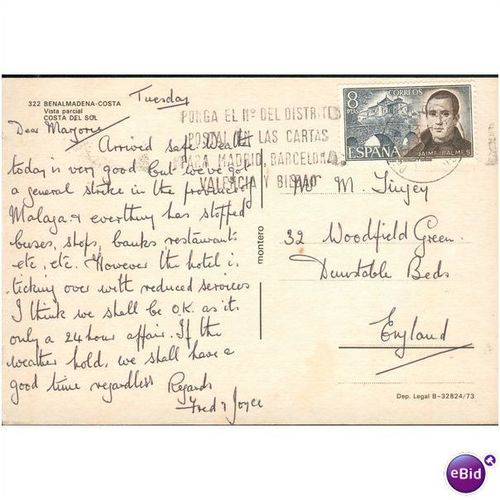 322 BENALMADENA-COSTA
Vista parcial
COSTA DEL SOL
Tuesday
Dear Marjorie
Arrived safe weather
today is very good but we've got
a general strike in the province of
Malaga & everthing has stopped
buses, shops, banks restaurants
etc, etc. However the hotel is
ticking over with reduced services
I think we shall be O.K. as its
only a 24 hour affair. If the
weather holds, we shall have a
good time regardless Regards
Fred & Joyce
montero
PONGA EL Nº DEL DISTRITO
POSTAL EN LAS CARTAS
PARA MADRID, BARCELONA,
VALENCIA Y BILBAO
8
PTAS
CORREOS
ESPAÑA
JAIME BALMES
M. Tingey
32 Woodfield Green.
Dunstable Beds
England
Dep. Legal B-32824/73
eBid